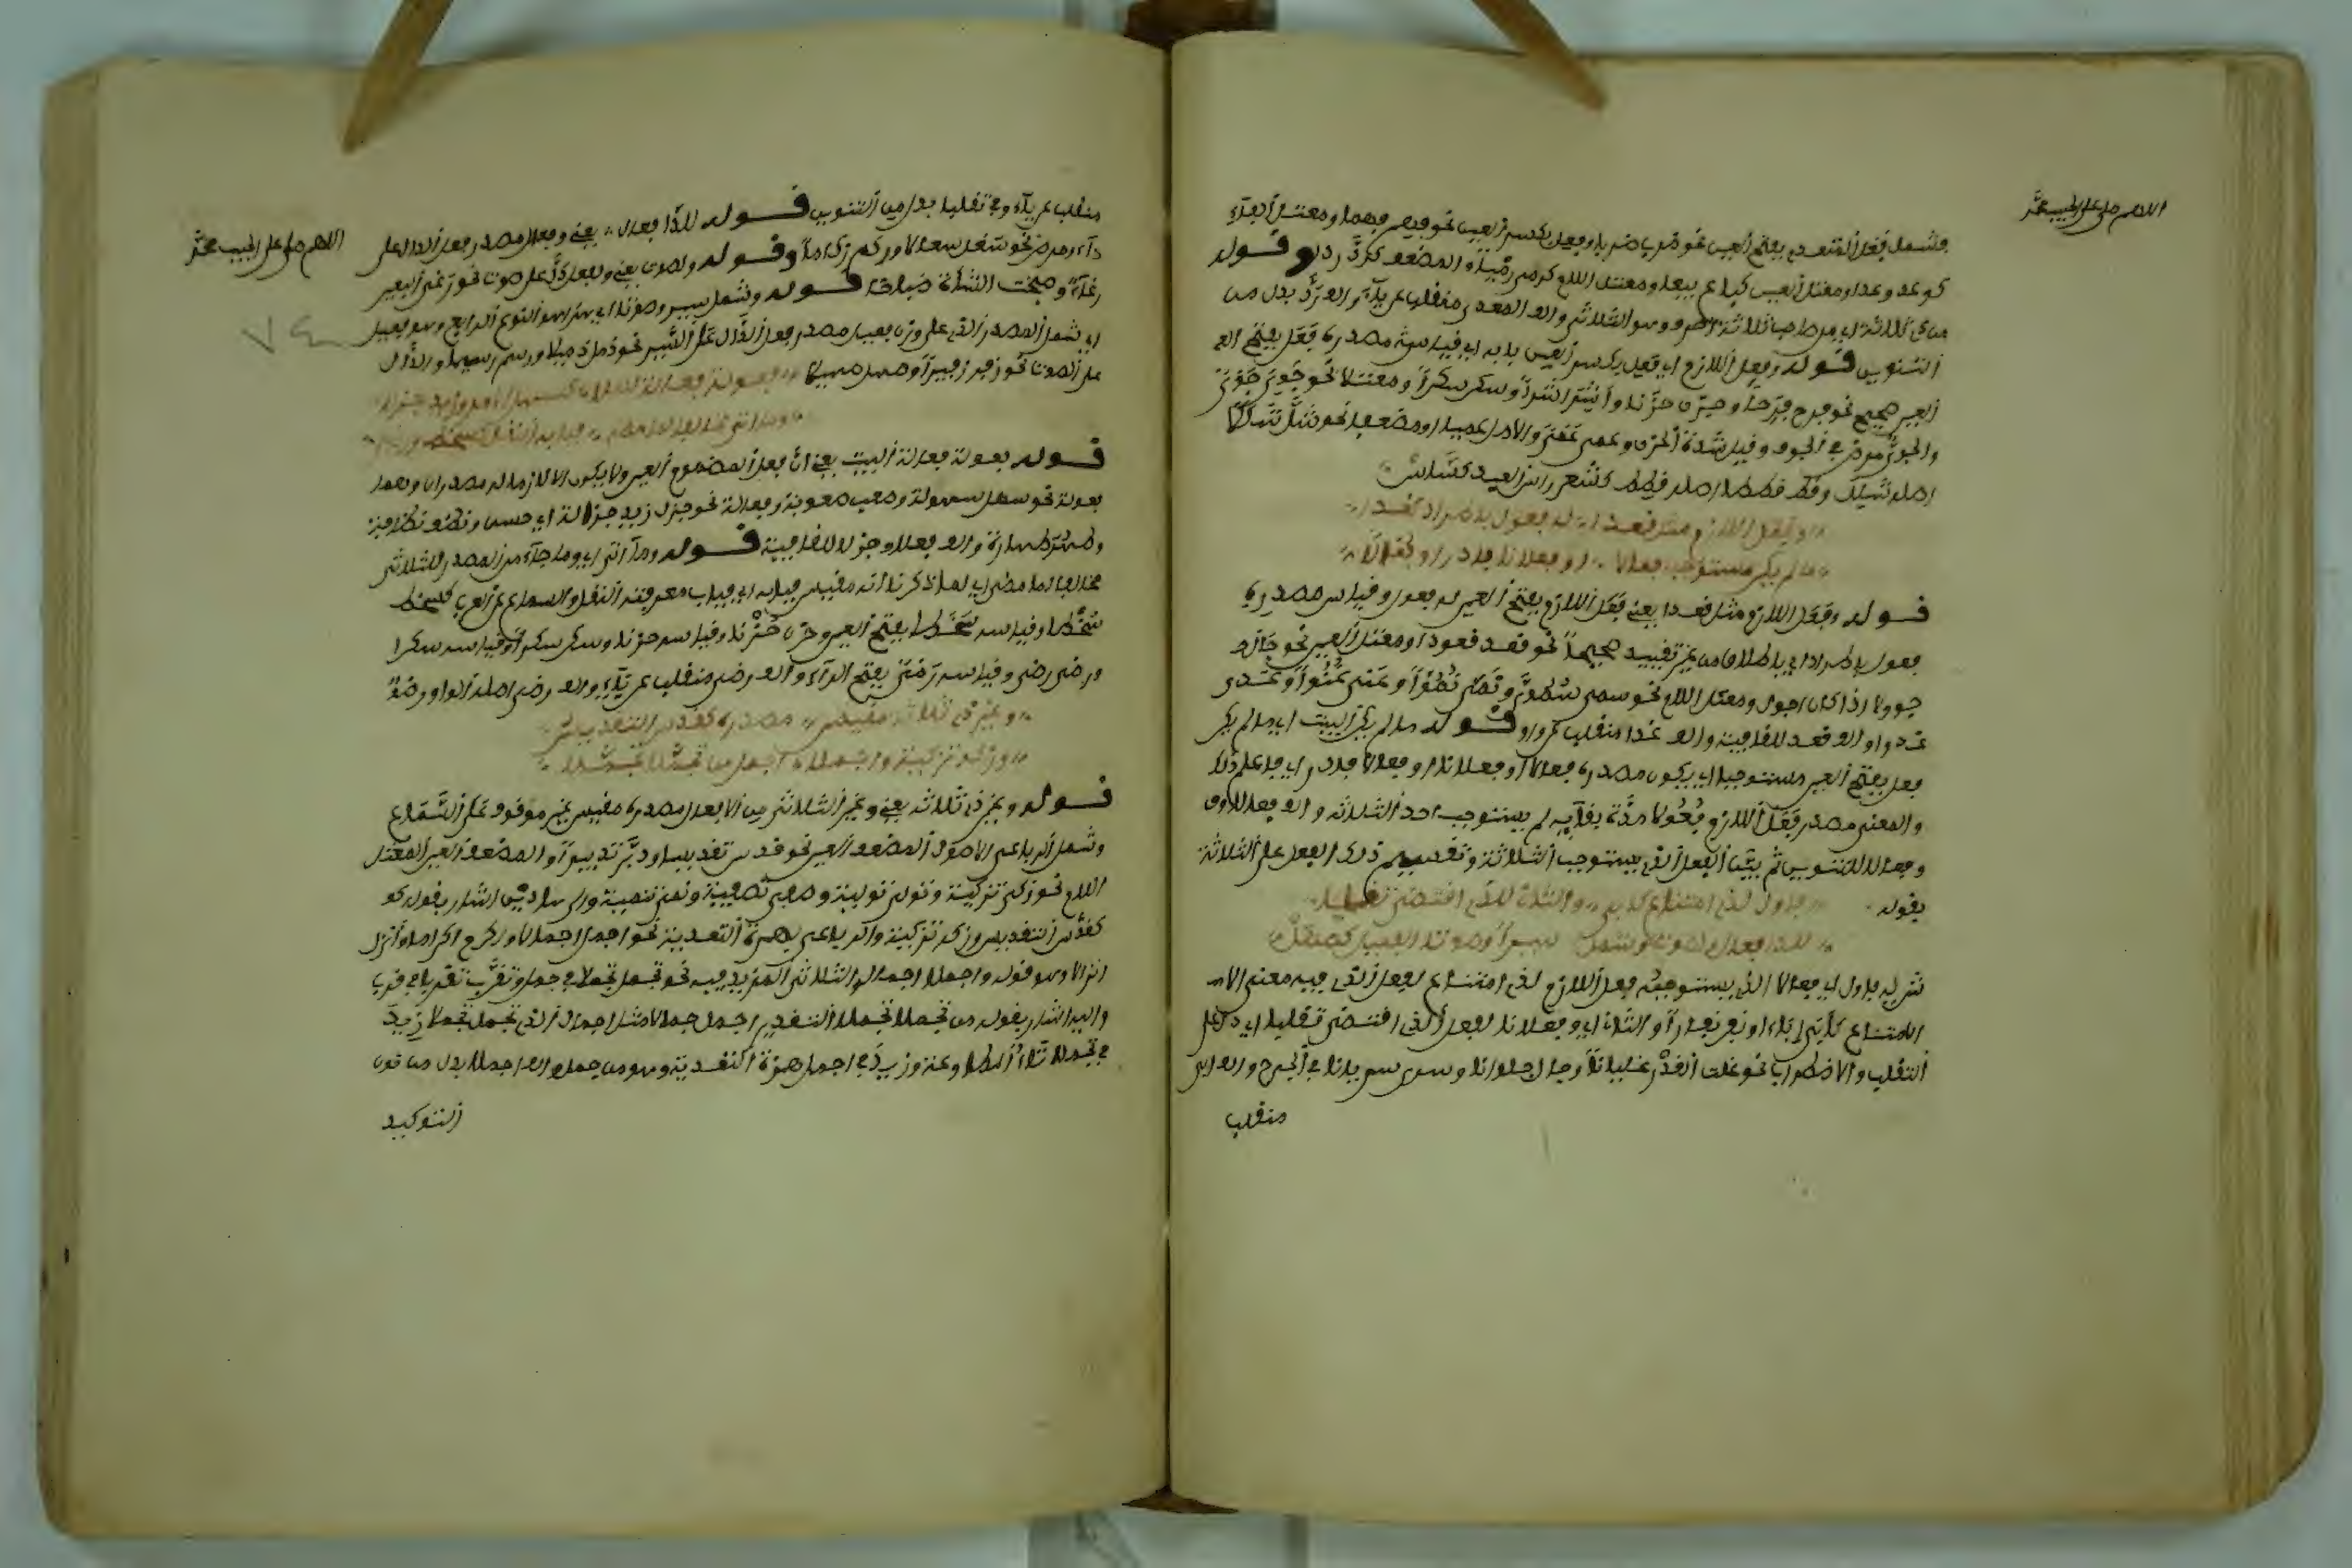 اللهم صل على الحبيب محمد
فيشمل فعل المتعدي بفتح العين نحو ضرب ضربا وفعل بكسر العين نحو فهم فهما ومعتل الفاء
كوعد وعدا ومعتل العين كباع بيعا ومعتل اللام كرمى رميا والمضعف كرد ردا وقوله
من ذي ثلاثة اي من صاحب ثلاثة احرف وهو الثلاثي والف المعدى منقلب عن ياء والف ردا بدل من
التنوين قوله وفعل اللازم اي فعل بكسر العين بابه اي قياس مصدره فعل بفتح العـ
العين صحيح نحو فرح فرحا وحزن حزنا واشر اشرا وسكر سكرا ومعتلا نحو جوي جوى
والجوى مرض في الجوف وقيل شدة الحزن وعمي عمى والاصل عميا ومضعفا نحو شل شللا
اصله شلل وقط قططا اصله قطط كشعر راس العبد
وفعل اللازم مثل قعدا له فعول باطراد كغدا
ما لم يكن مستوجبا فعالا او فعلانا فادر او فعالا
قوله وفعل اللازم مثل قعدا يعني فعل اللازم بفتح العين له فعول وقياس مصدره
فعول باطراد اي باطلاق من غير تقييد صحيحا نحو قعد قعودا ومعتل العين نحو جال
جوولا اذا كان اجوف ومعتل اللام نحو سمى سموا ونمى نموا وعتى عتوا وغدى
غدوا والف قعد للقافية والف غدا منقلب عن واو قوله ما لم يكن البيت اي ما لم يكن
فعل بفتح العين مستوجبا اي يكون مصدره فعالا او فعلانا او فعالا فادر اي فاعلم ذلك
والمعنى مصدر فعل اللازم فعولا مدة بقايه لم يستوجب احد الثلاثة والف فعالا الاول
وفعالا للتنوين ثم بين الفعل الذي يستوجب الثلاثة وتقسيم ذلك الفعل على الثلاثة
بقوله فاول لذي امتناع كابى والثان للذي اقتضى تقلبا
للدا فعال او لصوت وشمل سيرا وصوتا الفعيل كصهل
قوله فاول اي فعالا الذي يستوجبه فعل اللازم لذي امتناع لفعل الذي فيه معنى الامـ
الامتناع كابى اباء ونفر نفارا والثان اي وفعلانا لفعل الذي اقتضى تقلبا اي دل على
التقلب والاضطراب نحو غلت القدر غليانا وجال جولانا وسرى سريانا في الجرح والف ابى
منقلب
اللهم صل على الحبيب محمد
منقلب عن ياء وفي تقلبا بدل من التنوين قوله للدا فعال يعني وفعال مصدر فعل الدال على
داء ومرض نحو سعل سعالا وزكم زكاما وقوله ولصوت يعني وفعل دل على صوت نحو رغى البعير
رغاء وضبحت الشاة ضباحا قوله وشمل سيرا وصوتا اي هذا هو النوع الرابع وهو فعيل
اي شمل المصدر الذي على وزن فعيل مصدر فعل الدال على السير نحو ذمل ذميلا ورسم رسيما والدال
على الصوت نحو زفر زفيرا وصهل صهيلا فعولة فعالة لفعلا كسهل الامر وزيد جزلا
وما اتى مخالفا لما مضى فبابه النقل كسخط ورضى
قوله فعولة فعالة البيت يعني ان فعل المضموم العين ولا يكون الا لازما له مصدران وهما
فعولة نحو سهل سهولة وصعب صعوبة وفعالة نحو جزل زيد جزالة اي حسن ونظف نظافة
وطهر طهارة والف فعلا وجزلا للقافية قوله وما اتى اي وما جاء من المصدر للثلاثي
مخالفا لما مضى اي لما ذكرنا انه مقيس فبابه اي فباب معرفته النقل والسماع عن العرب كسخط
سخطا وقياسه سخطا بفتح العين وحزن حزنا وقياسه حزنا وسكر سكرا وقياسه سكرا
ورضى رضى وقياسه رضى بفتح الراء والف رضى منقلب عن ياء والف رضى اصله الواو
وغير ذي ثلاثة مقيس مصدره كقدس التقديس
وزكه تزكية واجملا اجمال من تجملا تجملا
قوله وغير ذي ثلاثة يعني وغير الثلاثي من الافعال مصدره مقيس غير موقوف على السماع
وشمل الرباعي الاصول المضعف العين نحو قدس تقديسا ودبر تدبيرا والمضعف العين المعتل
اللام نحو زكى تزكية وتولى تولية وصفى تصفية ونمى تنمية والى هاذين اشار بقوله كو
كقدس التقديس وزكه تزكية والرباعي بهمزة التعدية نحو اجمل اجمالا واكرم اكراما وانزل
انزالا وهو قوله واجملا اجمال والثلاثي المزيد فيه نحو تجمل تجملا في جمل وتقرب تقربا في قرب
واليه اشار بقوله من تجملا تجملا التقدير اجمل اجمالا مثل اجمال الذي تجمل تجملا زيد
في تجملا تاء المطاوعة وزيد في اجمل همزة التعدية وهو من جمل والف اجملا بدل من نون
التوكيد